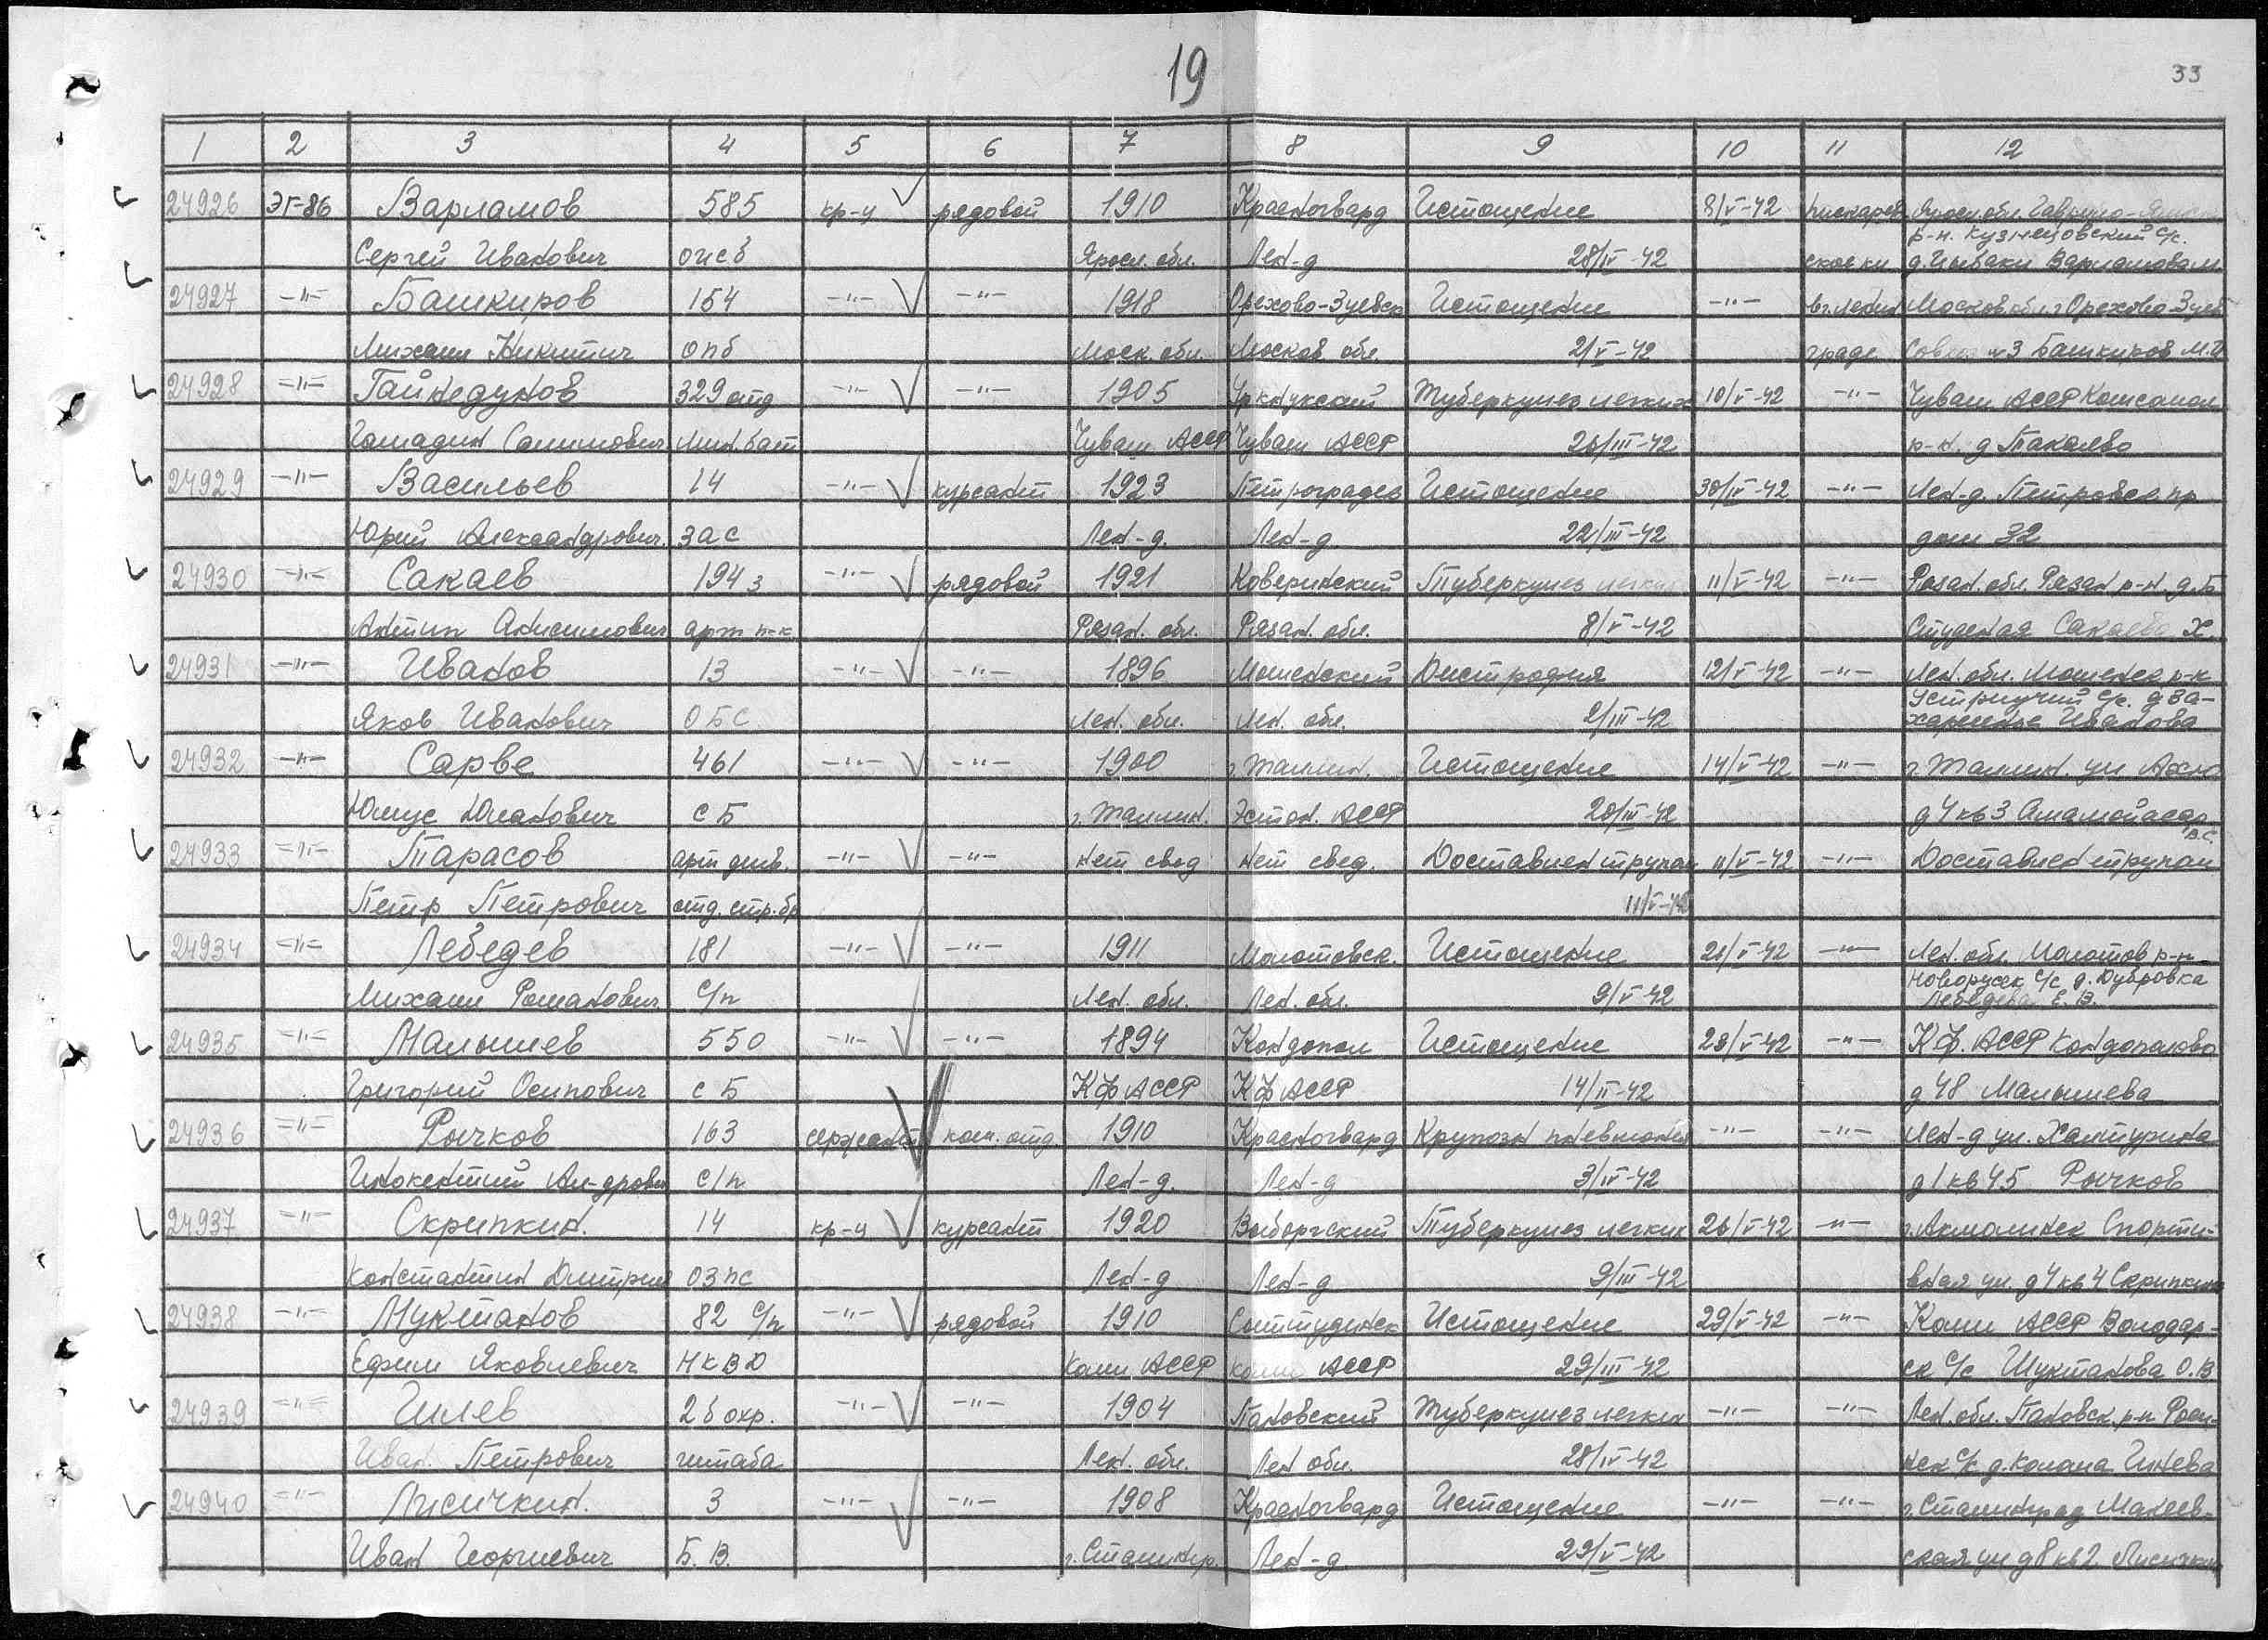 19
33
1 2 3 4 5 6 7 8 9 10 11 12
24926 ЭГ-86 Варламов 585 кр-ц рядовой 1910 Красногвард Истощение 8/V-42 Пискарев Яросл. обл. Гаврило-
р-н. Кузнецовский с/с.
Сергей Иванович оисб Яросл. обл. Лен-д 28/IV-42 ское кл д. Цыбаки Варламова М.
24927 -"- Башкиров 154 -"- -"- 1918 Орехово-Зуевск Истощение -"- в г. Ленин Москов. обл. г Орехово-Зуев
Михаил Никитич опб Моск. обл. Москов обл. 2/V-42 граде №3 Башкиров М.И
24928 -"- Гайнедунов 329 отд -"- -"- 1905 Туберкулез легких 10/V-42 -"- Чуваш АССР Комсомол
Гомадин Салимович мин. бат Чуваш АССР Чуваш АССР 26/III-42 р-н. д Такаево
24929 -"- Васильев 14 -"- курсант 1923 Петроградск Истощение 30/IV-42 -"- Лен-д. Петровск. пр
Юрий Александрович. зас Лен-д. Лен-д 22/III-42 дом 32
24930 -"- Сакаев 194 з -"- рядовой 1921 Коверинский Туберкулез легких 11/V-42 -"- Рязан. обл. Рязан р-н. д. Б
Антип Анисимович арт п-к Рязан. обл. Рязан. обл. 8/V-42 Студеная Сакаева Х.
24931 -"- Иванов 13 -"- -"- 1896 Мошенский Дистрофия 12/V-42 -"- Лен. обл. Мошенск р-н
Устрицкий с/с. д За-
Яков Иванович ОБС Лен. обл. Лен. обл. 2/III-42 Иванова
24932 -"- Сарве 461 -"- -"- 1900 г Таллин. Истощение 14/V-42 -"- г Таллин. ул
Юлиус Юганович СБ г. Таллин. Эстон. АССР 20/III-42 д 4 кв 3
24933 -"- Тарасов арт див. -"- -"- нет свед нет свед. Доставлен трупом 11/V-42 -"- Доставлен трупом
Петр Петрович отд. стр. бр 11/V-42
24934 -"- Лебедев 181 -"- -"- 1911 Молотовск. Истощение 21/V-42 -"- Лен. обл. Молотов р-н
Новорусск с/с д. Дубровка
Михаил Романович с/п Лен. обл. Лен. обл. 9/V-42 Лебедева Е. В.
24935 -"- Малышев 550 -"- -"- 1894 Кондопол Истощение 23/V-42 -"- К.Ф. АССР Кондополово
Григорий Осипович СБ КФ АССР КФ АССР 14/II-42 д 48 Малышева
24936 -"- Рычков 163 сержант ком. отд 1910 Красногвард Крупозн пневмония -"- -"- Лен-д ул. Халтурина
Инокентий Ал-дрович с/п Лен-д. Лен-д 3/IV-42 д 1 кв 45 Рычков
24937 -"- Скрипкин. 14 кр-ц курсант 1920 Выборгский Туберкулез легких 26/V-42 -"- г. Акмолинск Спорти-
Константин Дмитриев озпс Лен-д Лен-д 9/III-42 вная ул. д 4 кв 4 Скрипкина
24938 -"- Мукшанов 82 с/п -"- рядовой 1910 Истощение 29/V-42 -"- Коми АССР Володар-
Ефим Яковлевич НКВД Коми АССР Коми АССР 29/III-42 ск с/с О.В
24939 -"- Гилев 2 б охр. -"- -"- 1904 Пановский Туберкулез легких -"- -"- Лен. обл. Пановск. р-н
Иван Петрович штаба Лен. обл. Лен обл. 28/IV-42 с/с д.
24940 -"- Лисичкин. 3 -"- -"- 1908 Красногвард Истощение -"- -"- г. Сталинград Макеев-
Иван Георгиевич Б.В. г. Сталингр. Лен-д. 29/V-42 ская ул д 8 кв 2 Лисичкин